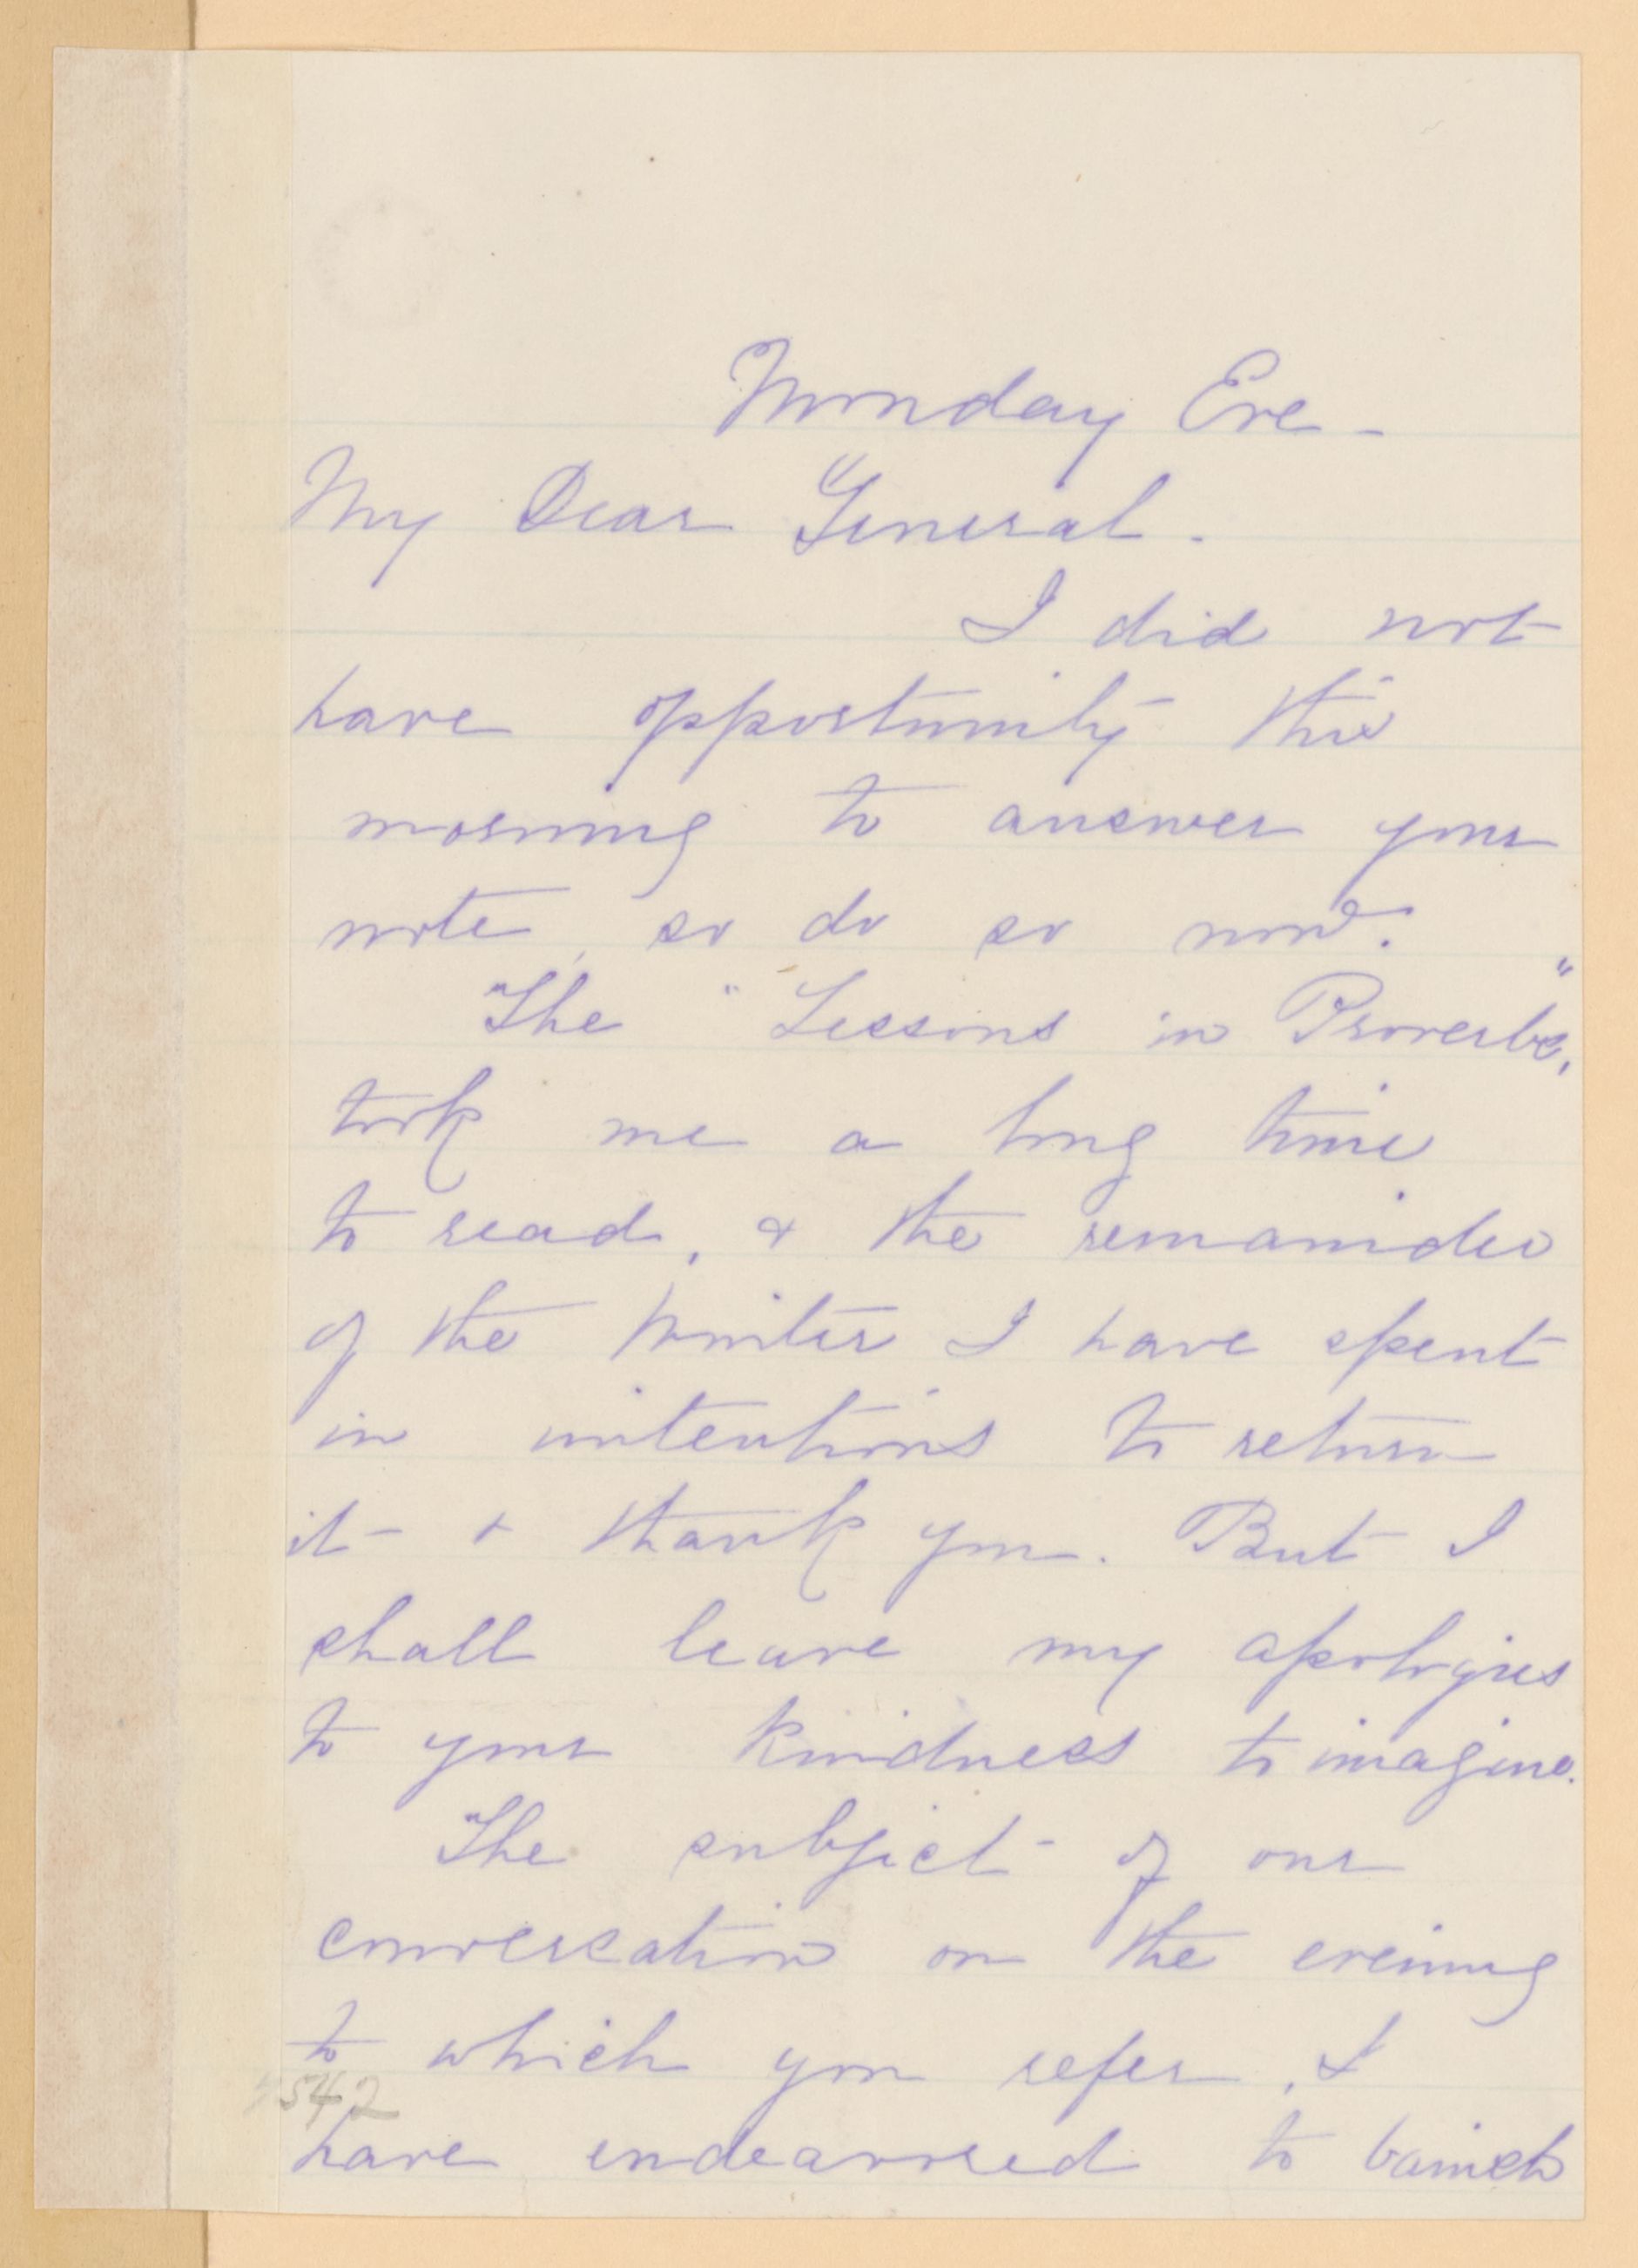 Monday Eve -
My Dear General.
I did not
have opportunity this
morning to answer your
note, so do so now.
The "Lessons in Proverbs,"
took me a long time
to read, & the remainder
of the Winter I have spent
in intentions to return
it - & thank you. But I
shall leave my apologies
to your kindness to imagine.
The subject of our
conversation on the evening
to which you refer, I
542
have endeavored to banish